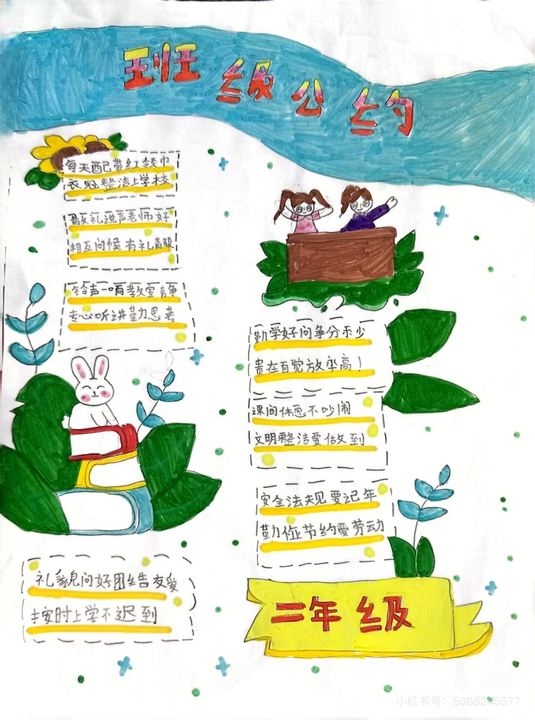 班级公约
每天配带红领巾
衣冠整洁上学校
敬礼说声老师好
相互问候有礼貌
铃声一响教室静
专心听讲勤思考
勤学好问争分秒
贵在自觉效率高！
课间休息不吵闹
文明整洁要做到
安全法规要记牢
勤俭节约爱劳动
礼貌问好团结友爱
按时上学不迟到
二年级
小红书号：5088295677